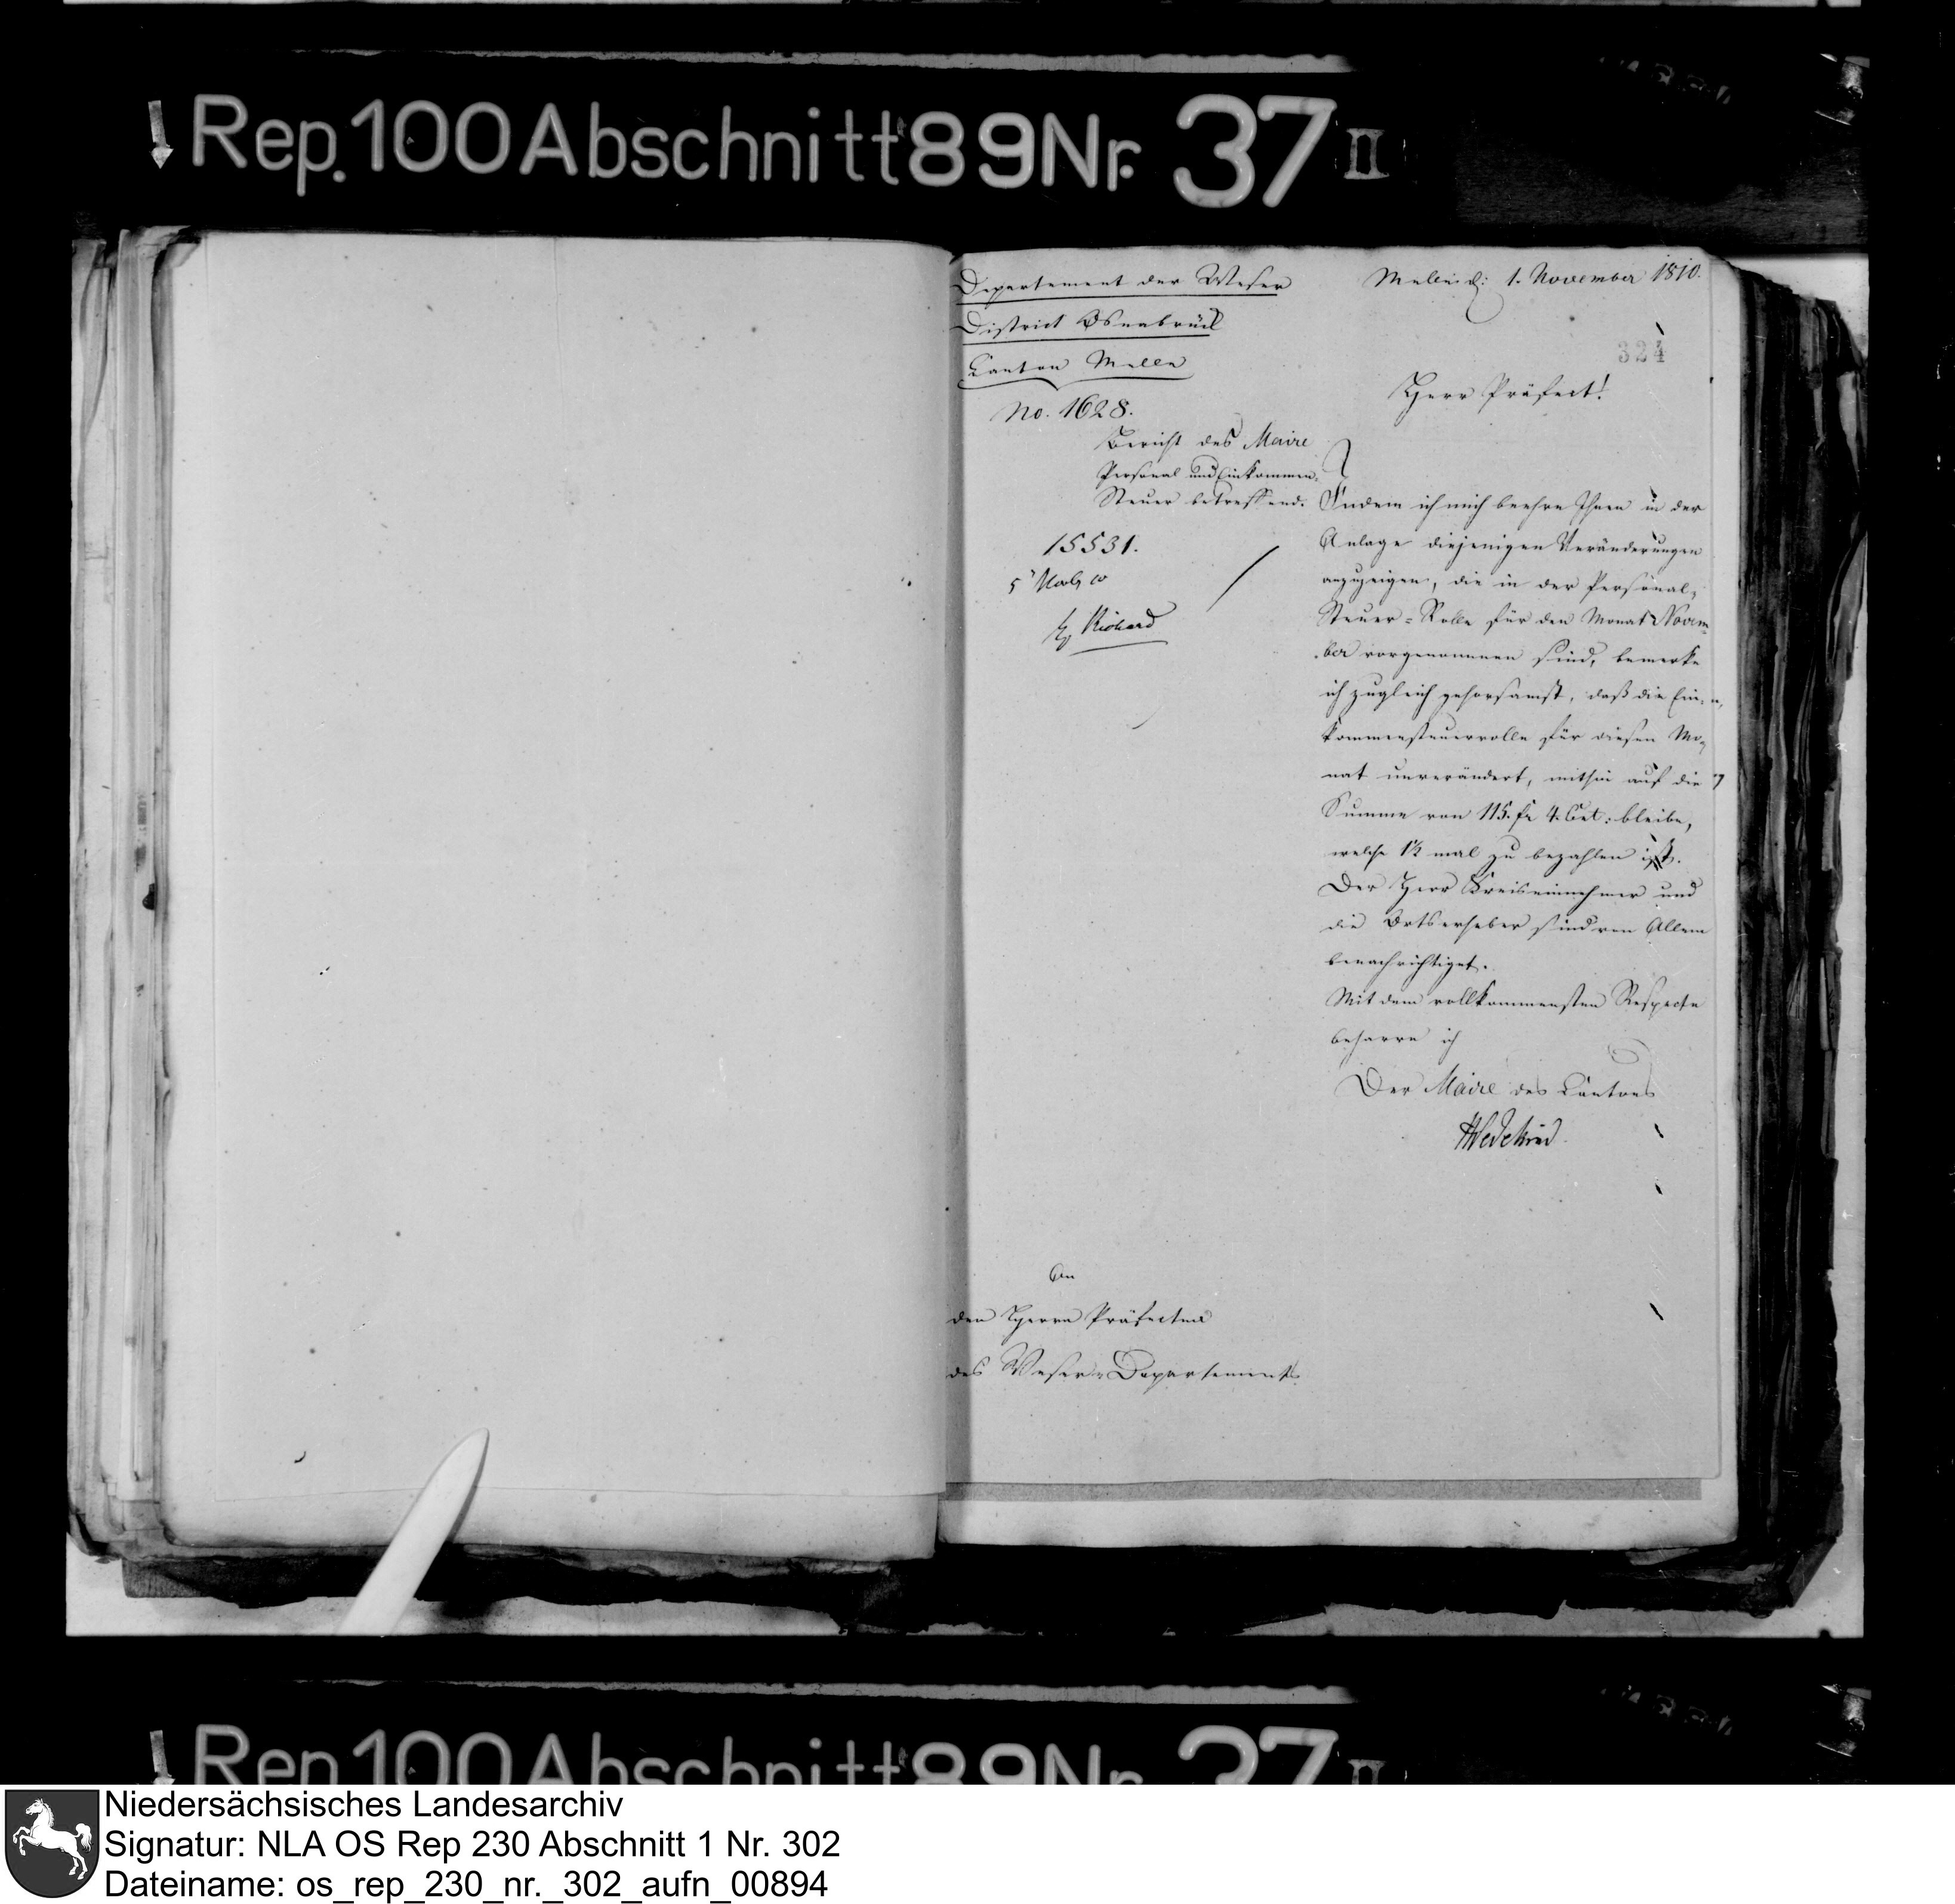 Rep. 100 Abschnitt 89 Nr. 37 II
Departement der Weser
District Osnabrück
Canton Melle
No. 1628.
Bericht des Maire
Personal und Einkommen-
Steuer betreffend.
15531.
5 Novbr 10
Richard
Melle d: 1. November 1810.
324
Herr Präfect!
Indem ich mich beehre Ihnen in der
Anlage diejenigen Veränderungen
anzuzeigen, die in der Personal-
Steuer-Rolle für den Monat Novem-
ber vorgenommen sind, bemerke
ich zugleich gehorsamst, daß die Ein-
kommensteuerrolle für diesen Mo-
nat unverändert, mithin auf die
Summe von 115. fr 4. Cet: bleibe,
welche 1½ mal zu bezahlen ist.
Der Herr Kreiseinnehmer und
die Ortserheber sind von Allem
benachrichtiget.
Mit dem vollkommensten Respecte
beharre ich
Der Maire des Cantons
Wedekind
An
den Herrn Präfecten
des Weser-Departements
Rep. 100 Abschnitt 89 Nr. 37 II
Niedersächsisches Landesarchiv
Signatur: NLA OS Rep 230 Abschnitt 1 Nr. 302
Dateiname: os_rep_230_nr._302_aufn_00894